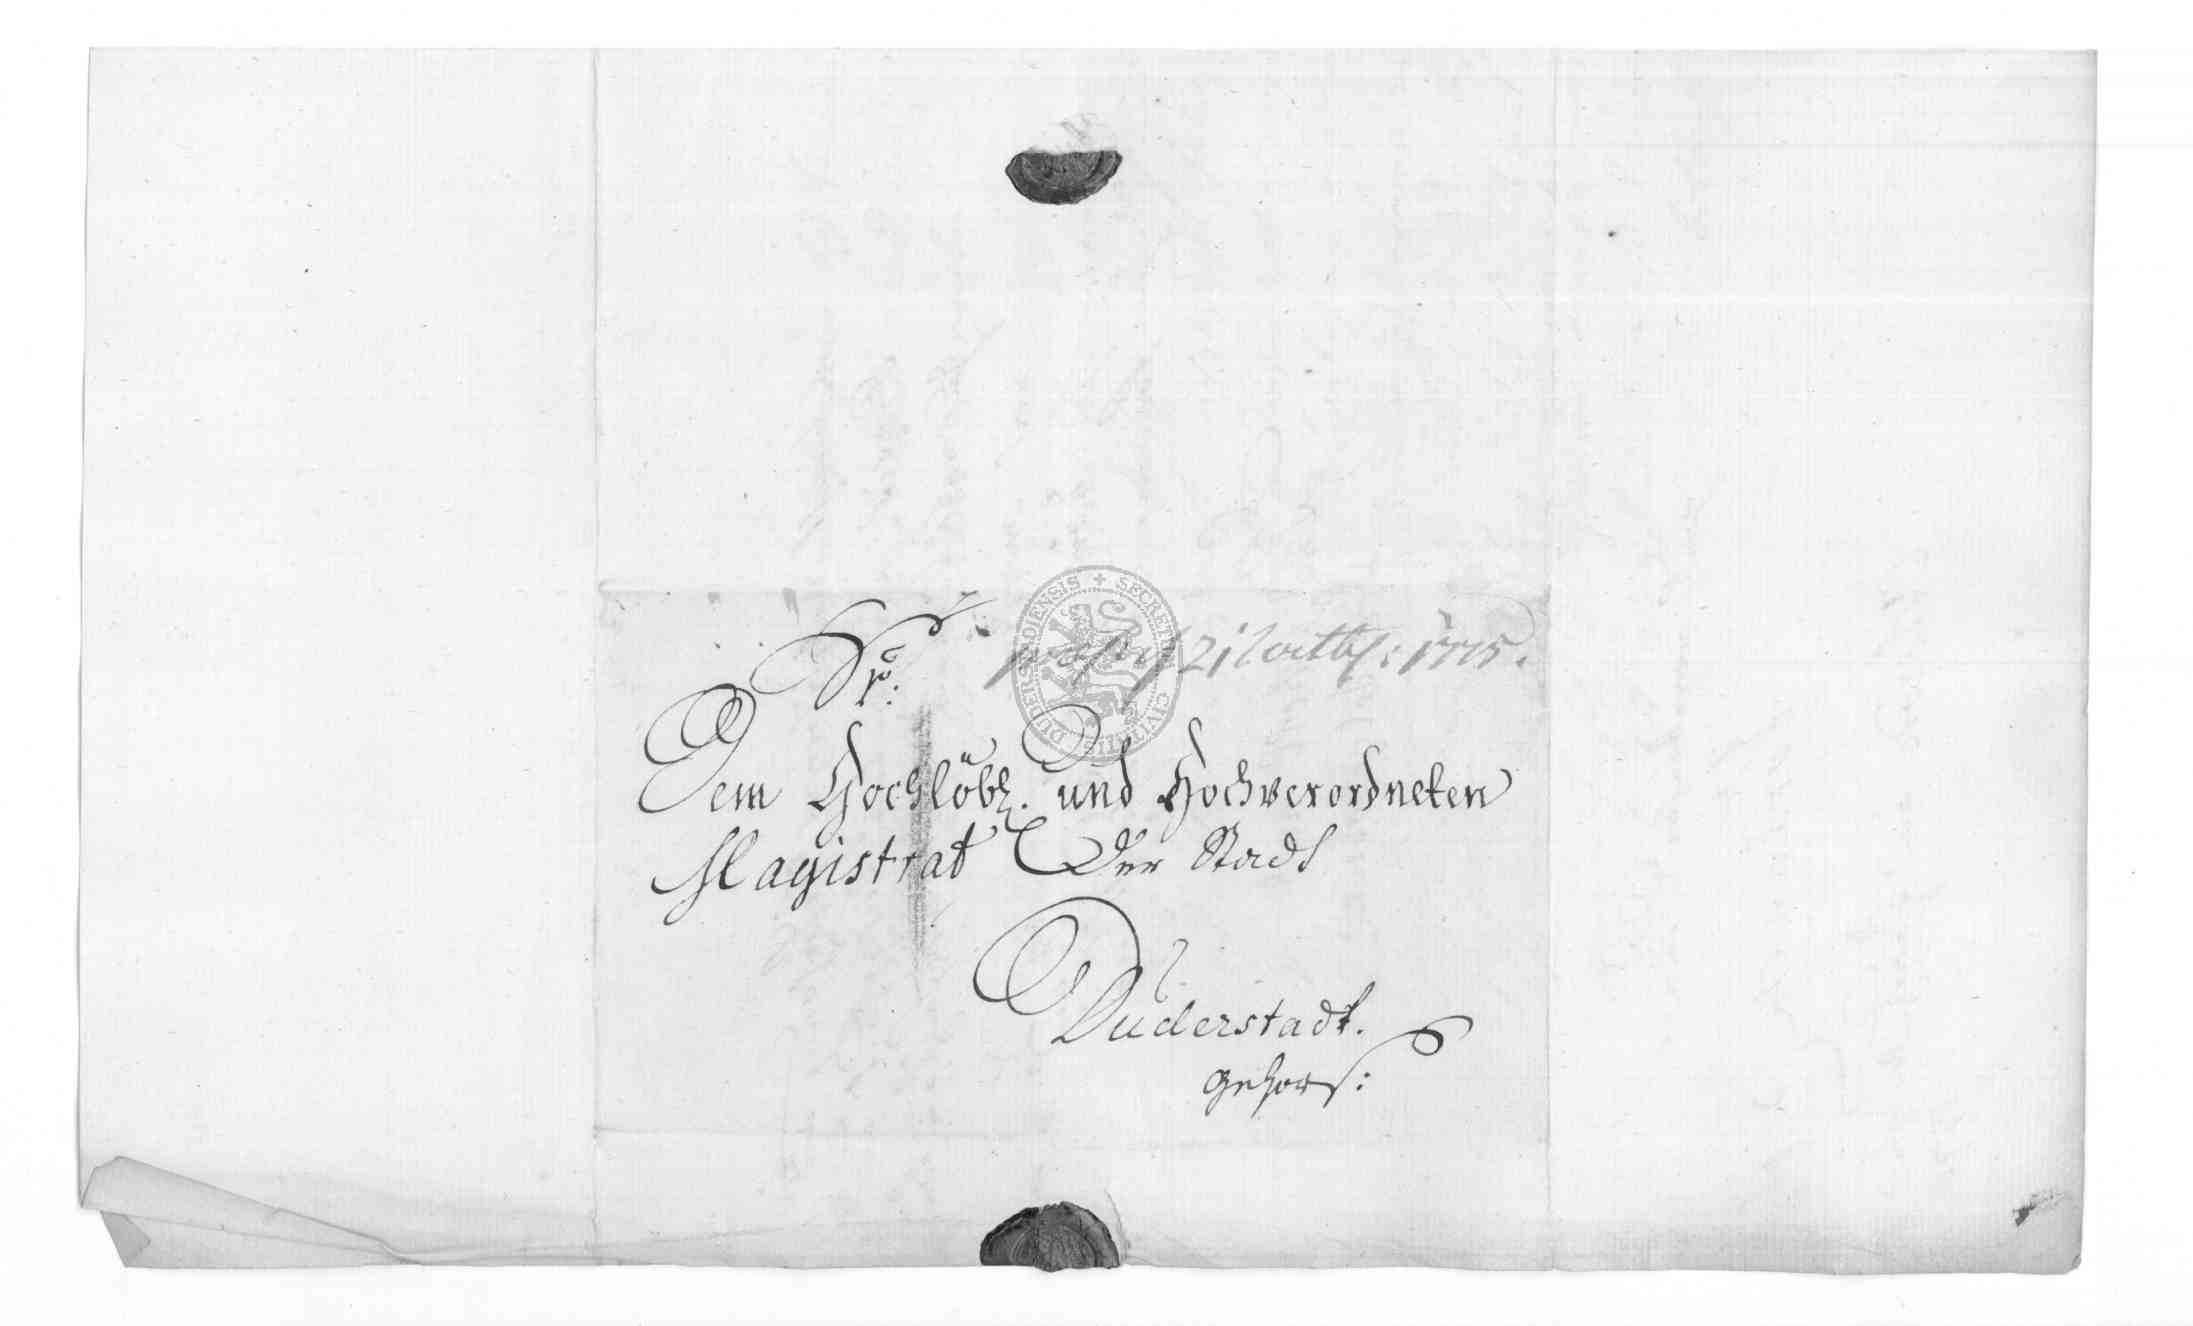 praes: 21 octbr: 1775.
Dem Hochlöbl. und Hochverordneten
Magistrat Der Stadt
Duderstadt.
gehors:
SECRETUM CIVITATIS DUDERSTADIENSIS